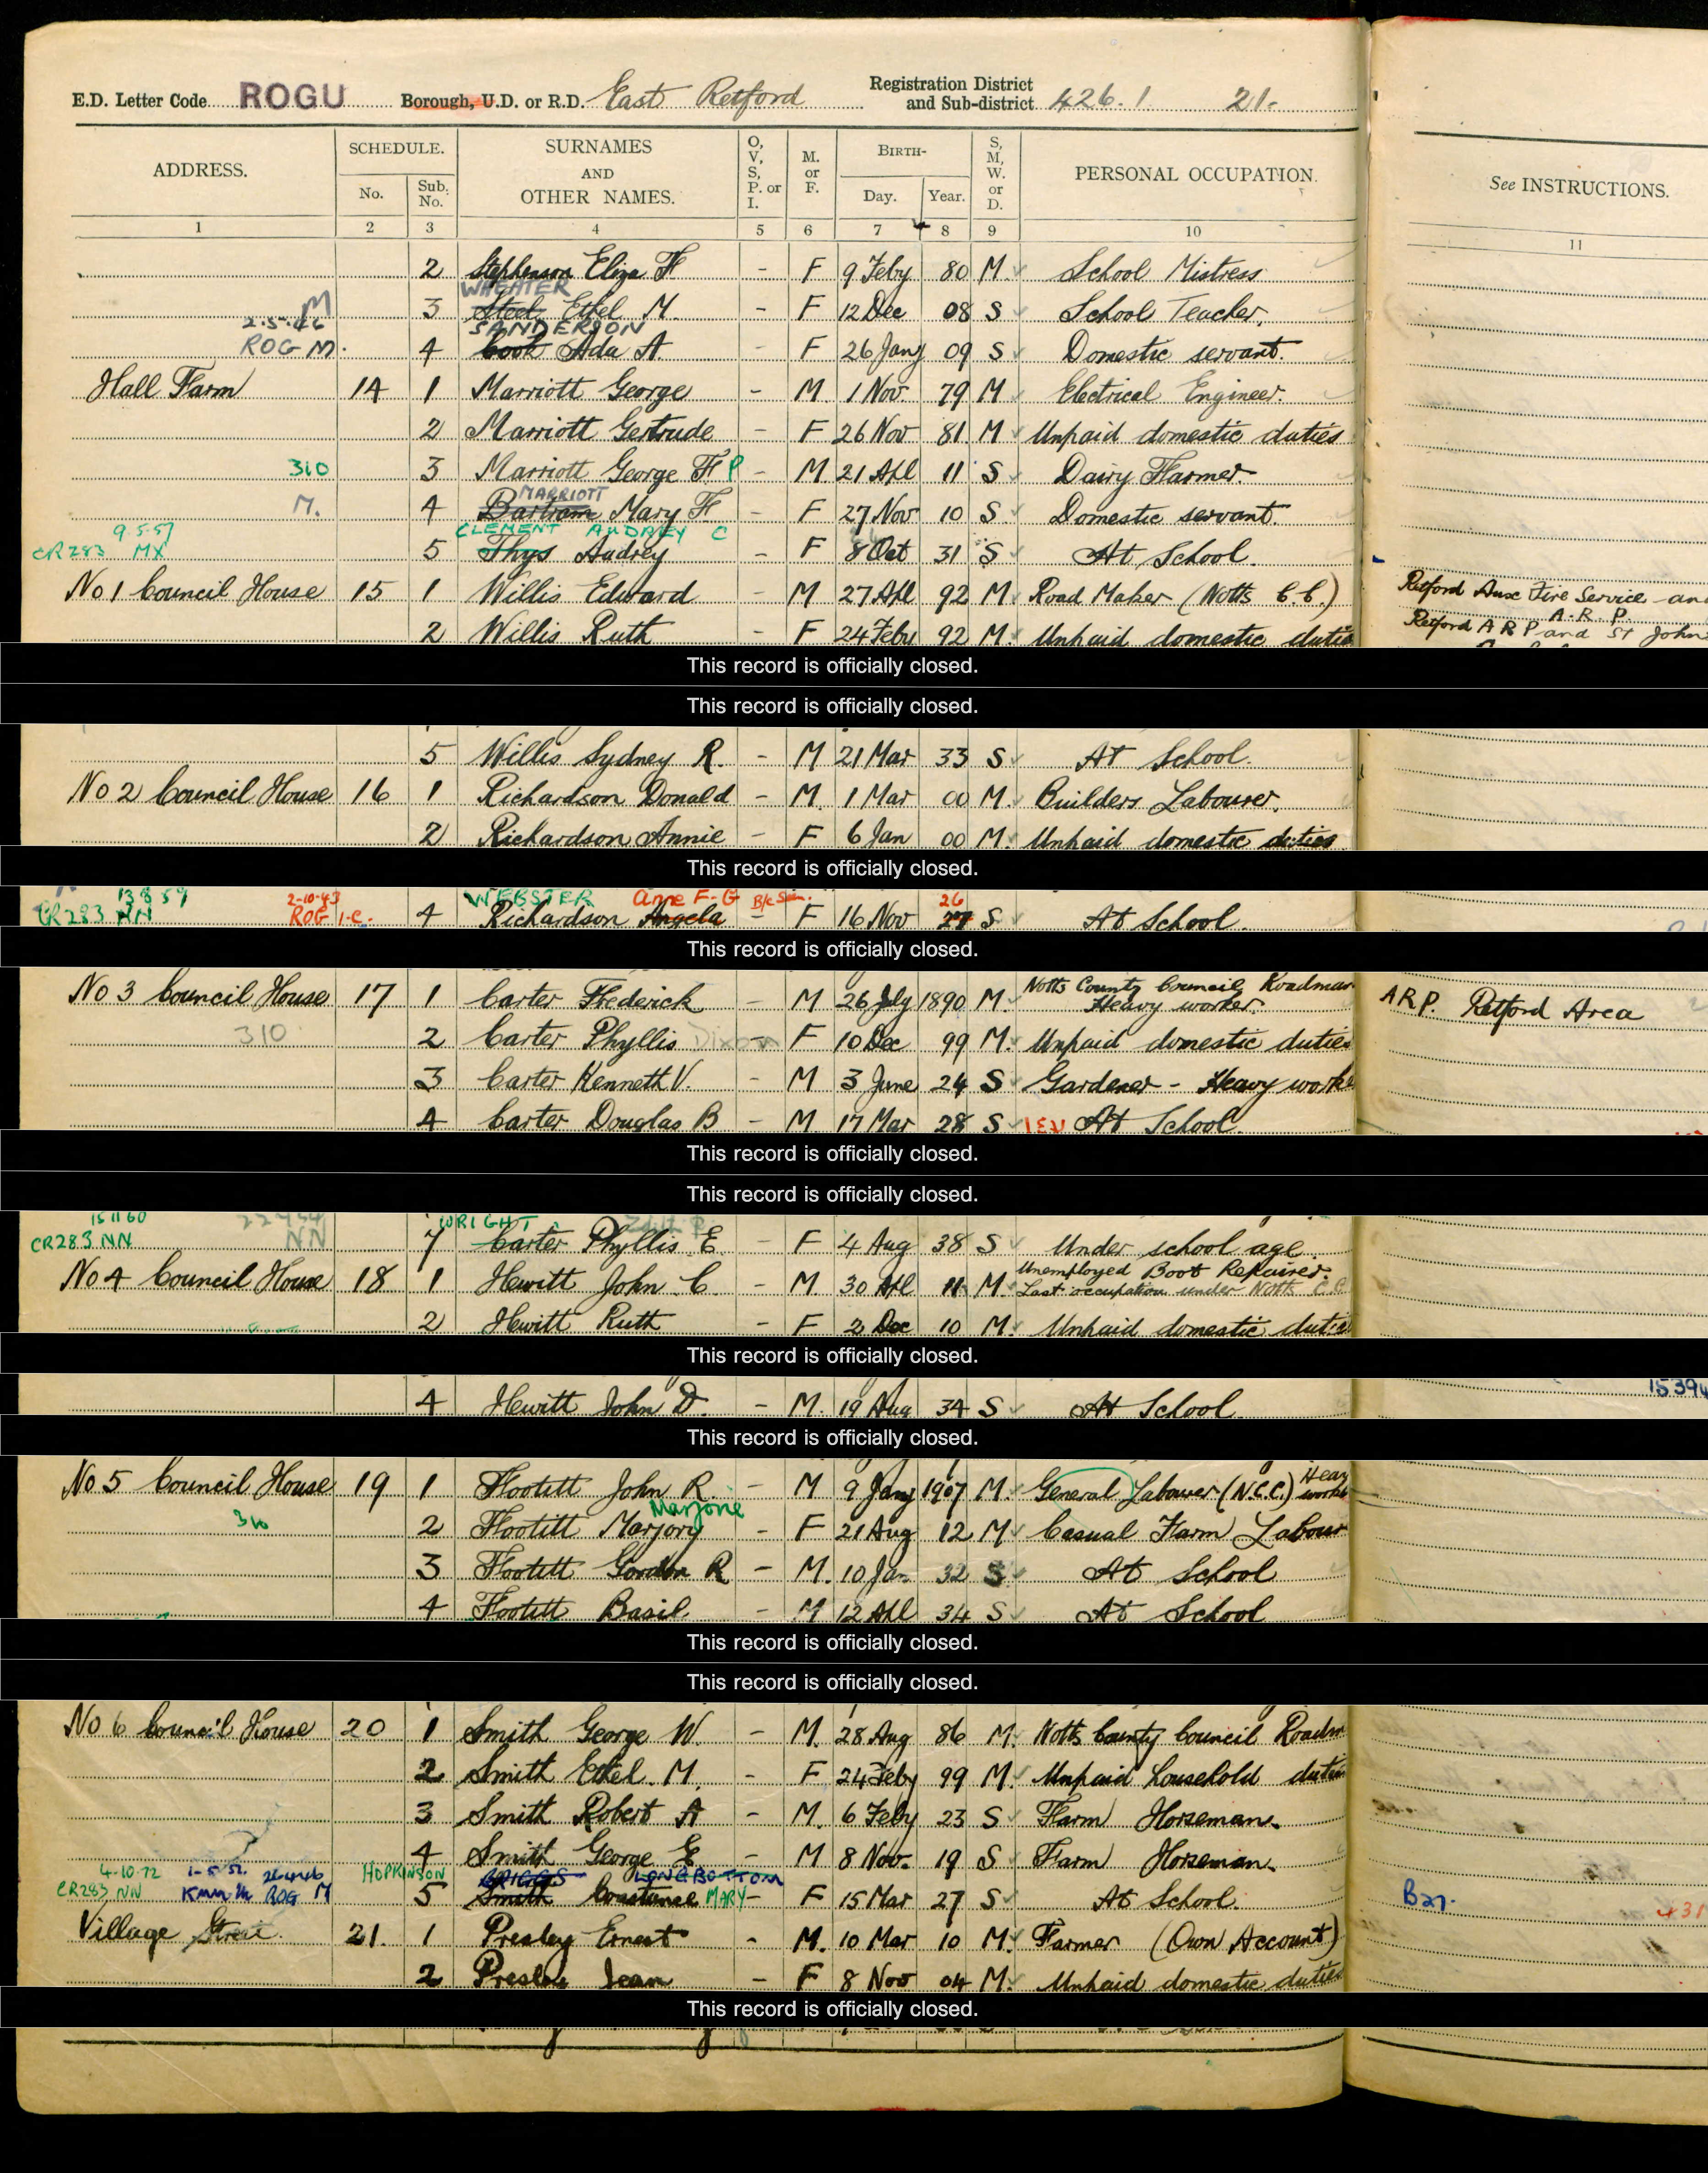 E.D. Letter Code ROGU Borough, U.D. or R.D. East Retford Registration District and Sub-district 426.1 21.
ADDRESS. SCHEDULE. No. Sub. No. SURNAMES AND OTHER NAMES. O, V, S, P. or I. M. or F. BIRTH- Day. Year. S, M, W. or D. PERSONAL OCCUPATION. See INSTRUCTIONS.
1 2 3 4 5 6 7 8 9 10 11
2 Stephenson Eliza H - F 9 Feby 80 M School Mistress
WHEATER
M 3 Steel Ethel M. - F 12 Dec 08 S School Teacher.
2.5.46 SANDERSON
ROG M. 4 Cook Ada A. - F 26 Jany 09 S Domestic servant.
Hall Farm 14 1 Marriott George - M. 1 Nov 79 M Electrical Engineer.
2 Marriott Gertrude - F 26 Nov 81 M Unpaid domestic duties
310 3 Marriott George H. P - M 21 Apl 11 S Dairy Farmer
MARRIOTT
M. 4 Bartram Mary H. - F 27 Nov 10 S Domestic servant.
9.5.57 CLEMENT AUDREY C
CR283 MX 5 Thys Audrey - F 8 Oct 31 S At School.
No 1 Council House 15 1 Willis Edward - M 27 Apl 92 M. Road Maker (Notts C.C.) Retford Aux Fire Service - and
A.R.P.
2 Willis Ruth - F 24 Feby 92 M. Unpaid domestic duties Retford A R P and St John
This record is officially closed.
This record is officially closed.
5 Willis Sydney R. - M 21 Mar 33 S At School.
No 2 Council House 16 1 Richardson Donald - M. 1 Mar 00 M. Builders Labourer.
2 Richardson Annie - F 6 Jan 00 M. Unpaid domestic duties
This record is officially closed.
13 8 59 2-10-43 WEBSTER Anne F-G 26
CR283 NN ROG 4 Richardson Angela - F 16 Nov 27 S At School.
This record is officially closed.
No 3 Council House 17 1 Carter Frederick - M 26 July 1890 M. Notts County Council Roadman A R P. Retford Area
Heavy worker.
310 2 Carter Phyllis Dixon F 10 Dec 99 M. Unpaid domestic duties
3 Carter Kenneth V. - M 3 June 24 S Gardener - Heavy worke
4 Carter Douglas B - M 17 Mar 28 S At School.
This record is officially closed.
This record is officially closed.
15 11 60 WRIGHT
CR283 NN NN 7 Carter Phyllis E - F 4 Aug 38 S Under school age.
No 4 Council House 18 1 Hewitt John C. - M. 30 Apl 11 M. Unemployed Boot Repairer.
Last occupation under Notts C.C.
2 Hewitt Ruth - F 2 Dec 10 M. Unpaid domestic duties
This record is officially closed.
4 Hewitt John D. - M. 19 Aug 34 S At School. 15394
This record is officially closed.
No 5 Council House 19 1 Flootitt John R. - M 9 Jany 1907 M. General Labourer (N.C.C.) Heavy worke
Marjorie
310 2 Flootitt Marjory - F 21 Aug 12 M Casual Farm Labour
3 Flootitt Gordon R - M. 10 Jan 32 S At School
4 Flootitt Basil - M 12 Apl 34 S At School
This record is officially closed.
This record is officially closed.
No 6 Council House 20 1 Smith George W. - M. 28 Aug 86 M. Notts County Council Roadm
2 Smith Ethel. M. - F 24 Feby 99 M. Unpaid household duties
3 Smith Robert A - M. 6 Feby 23 S Farm Horseman.
4 Smith George E. - M 8 Nov. 19 S Farm Horseman.
4-10-72 1-5-52. 26 4 46 HOPKINSON BRIGGS LONGBOTTOM
CR283 NN ROG M 5 Smith Constance MARY - F 15 Mar 27 S At School. B27. 431
Village Street 21. 1 Presley Ernest - M. 10 Mar 10 M. Farmer (Own Account)
2 Presley Jean - F 8 Nov 04 M. Unpaid domestic duties
This record is officially closed.